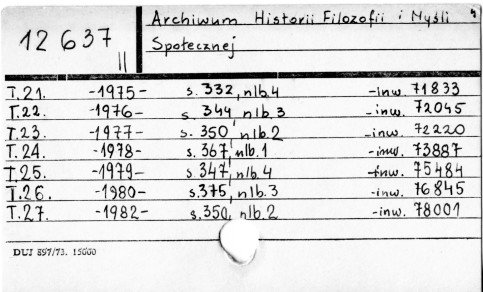 12 637
II
Archiwum Historii Filozofii i Myśli
Społecznej
4
T.21. -1975- s. 332, nlb.4 -inw. 71833
T.22. -1976- s. 344, nlb.3 -inw. 72045
T.23. -1977- s. 350, nlb.2 -inw. 72220
T.24. -1978- s. 367, nlb.1 -inw. 73887
T.25. -1979- s. 347, nlb.4 -inw. 75484
T.26. -1980- s. 375, nlb.3 -inw. 76845
T.27. -1982- s. 350, nlb.2 -inw. 78001
DUJ 897/73. 15000